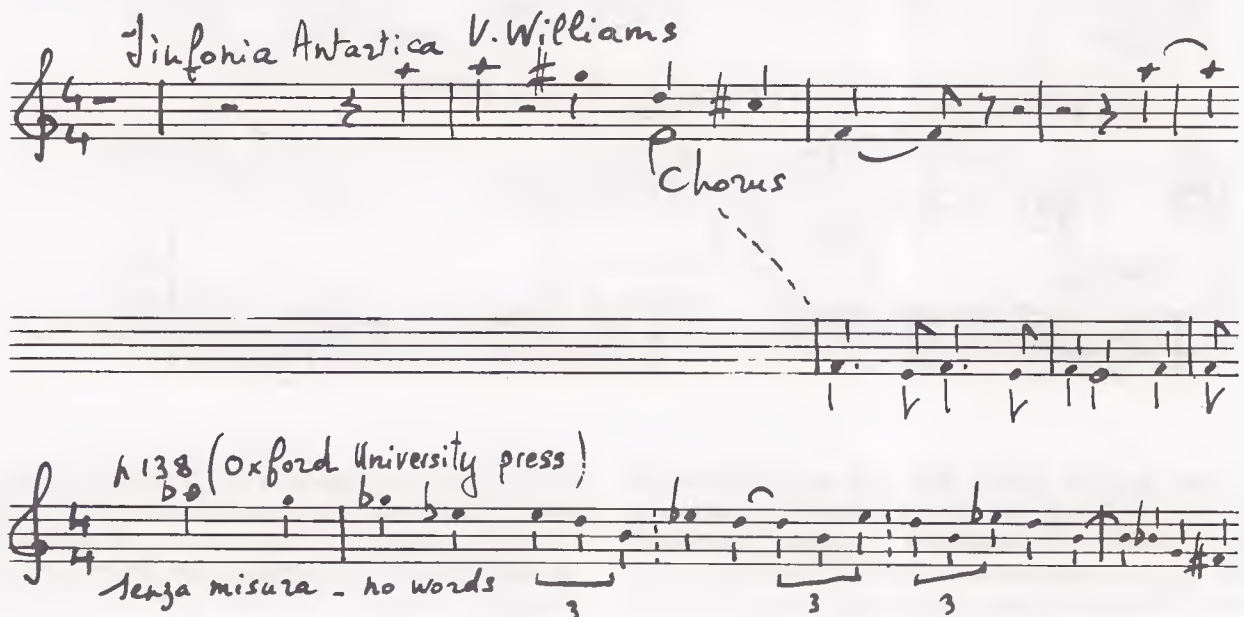 Sinfonia Antartica V. Williams
Chorus
p 138 (Oxford University press)
senza misura - no words
3 3 3